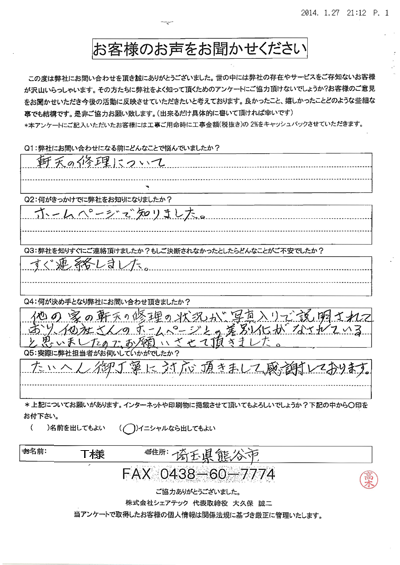 2014. 1.27 21:12 P. 1
お客様のお声をお聞かせください
この度は弊社にお問い合わせを頂き誠にありがとうございました。世の中には弊社の存在やサービスをご存知ないお客様
が沢山いらっしゃいます。その方たちに弊社をよく知って頂くためのアンケートにご協力頂けないでしょうか?お客様のご意見
をお聞かせいただき今後の活動に反映させていただきたいと考えております。良かったこと、嬉しかったことどのような些細な
事でも結構です。是非ご協力お願い致します。(出来るだけ具体的に書いて頂ければ幸いです)
*本アンケートにご記入いただいたお客様には工事ご用命時に工事金額(税抜き)の2%をキャッシュバックさせていただきます。
Q1:弊社にお問い合わせになる前にどんなことで悩んでいましたか?
軒天の修理について
Q2:何がきっかけで弊社をお知りになりましたか?
ホームページで知りました。
Q3:弊社を知りすぐにご連絡頂けましたか?もしご決断されなかったとしたらどんなことがご不安でしたか?
すぐ連絡しました。
Q4:何が決め手となり弊社にお問い合わせ頂きましたか?
他の家の軒天の修理の状況が、写真入りで説明されて
おり、他社さんのホームページとの差別化がなされている
と思いましたので、お願いさせて頂きました。
Q5:実際に弊社担当者がお伺いしていかがでしたか?
たいへん御丁寧に対応頂きまして、感謝しております。
*上記についてお願いがあります。インターネットや印刷物に掲載させて頂いてもよろしいでしょうか?下記の中から○印を
お付け下さい。
( )名前を出してもよい (○)イニシャルなら出してもよい
お名前: T様 ご住所: 埼玉県熊谷市
FAX 0438-60-7774
高木
ご協力ありがとうございました。
株式会社シェアテック 代表取締役 大久保 誠二
当アンケートで取得したお客様の個人情報は関係法規に基づき厳正に管理いたします。